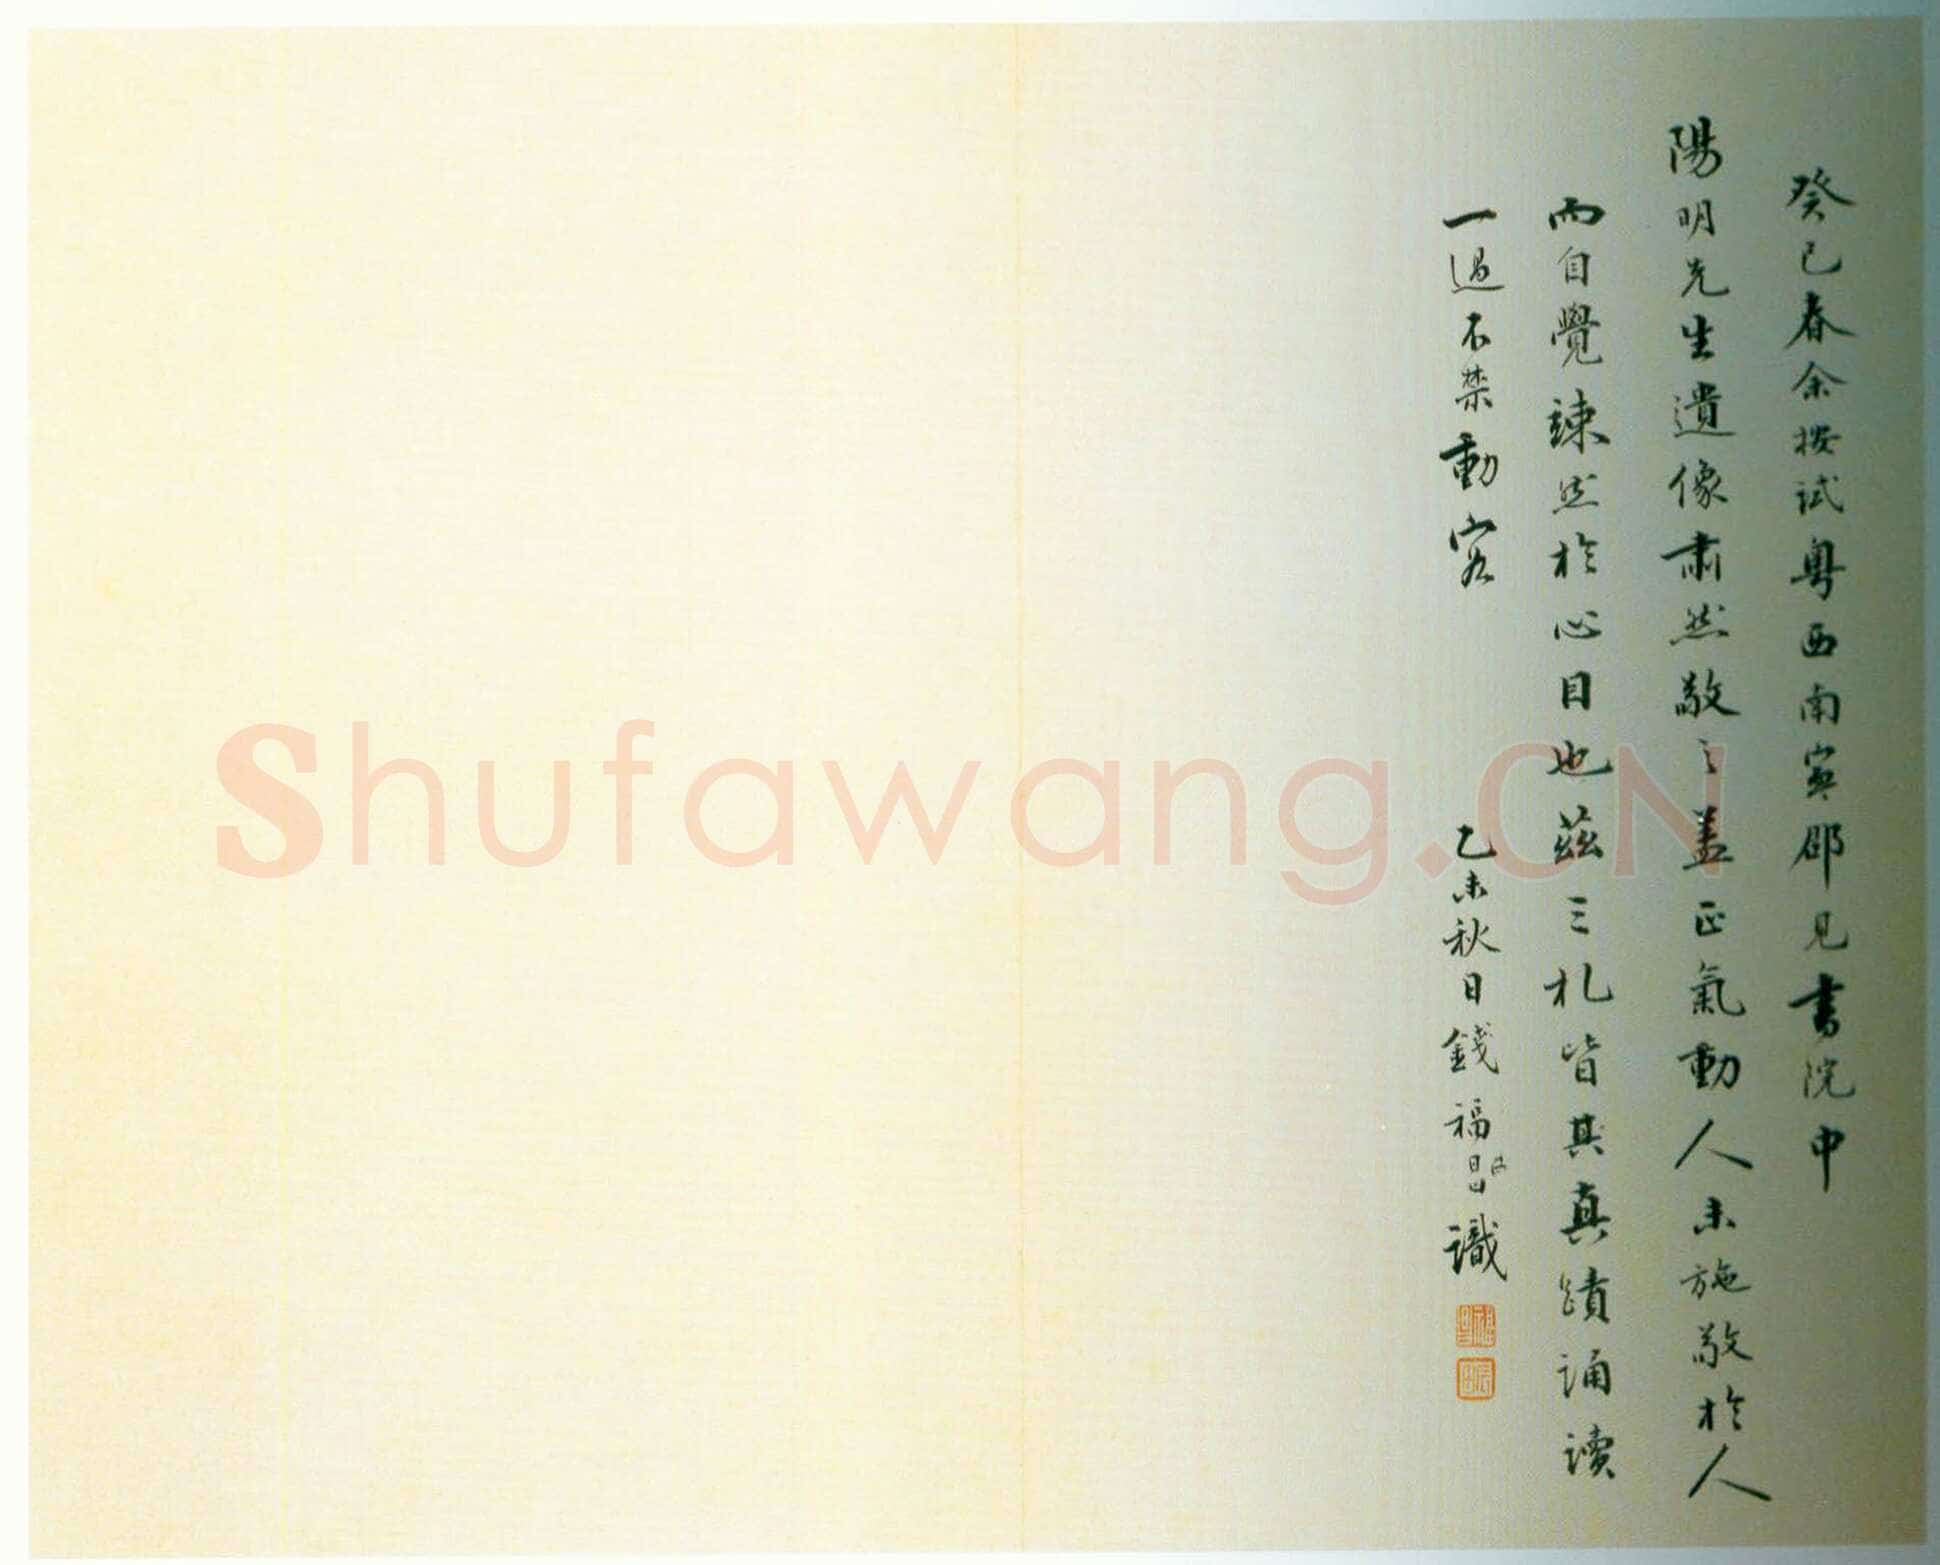 癸巳春余按試粵西南寧郡見書院中
陽明先生遺像肅然敬之蓋正氣動人未施敬於人
而自覺竦然於心目也茲三札皆其真蹟誦讀
一過不禁動容
乙未秋日錢福昌識
Shufawang.CN